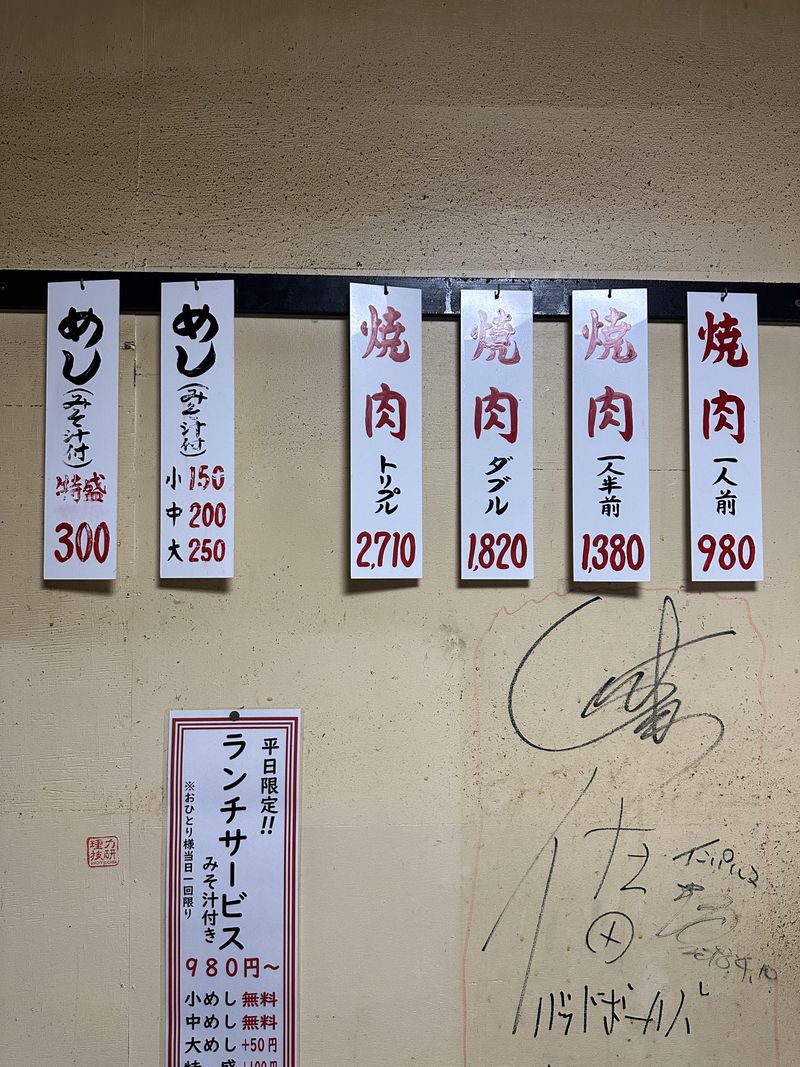 焼肉
一人前
980
焼肉
一人半前
1,380
焼肉
ダブル
1,820
焼肉
トリプル
2,710
めし
(みそ汁付)
小 150
中 200
大 250
めし
(みそ汁付)
特盛
300
平日限定!!
ランチサービス
みそ汁付き
※おひとり様当日一回限り
980円〜
小めし 無料
中めし 無料
大めし +50円
インパルス